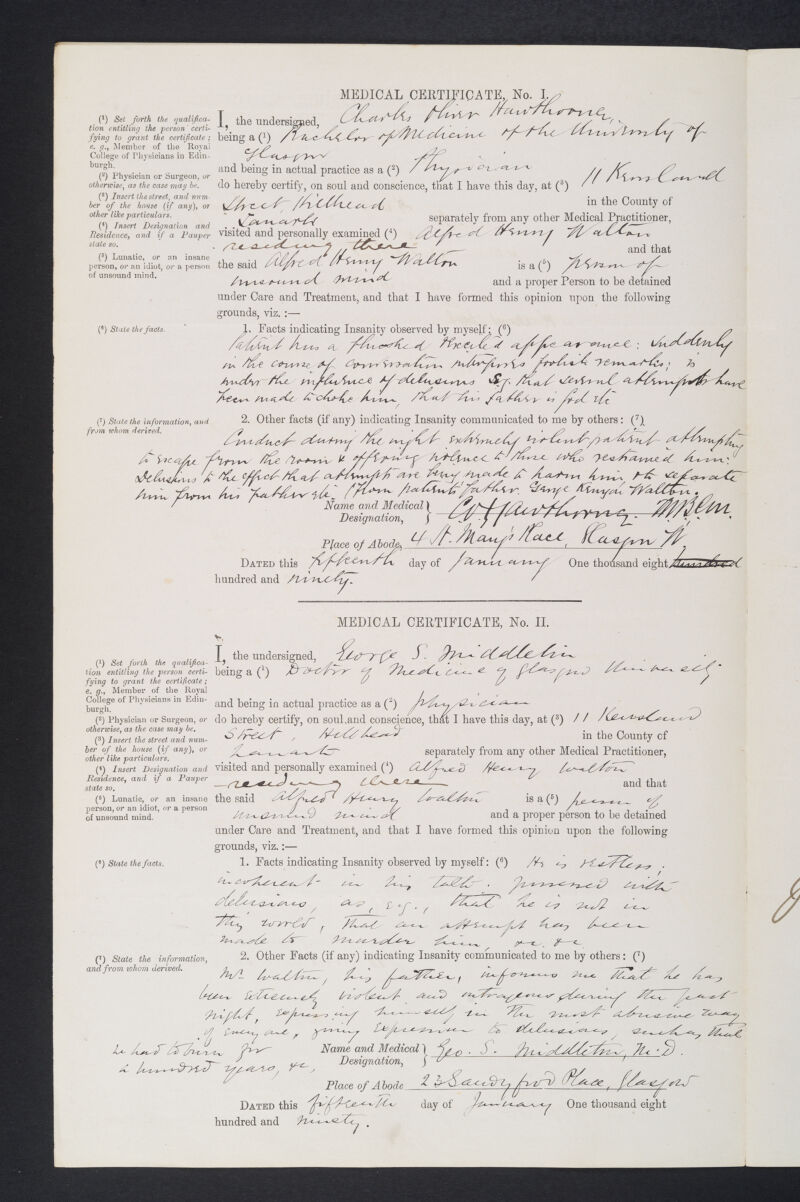 MEDICAL CERTIFICATE, No. I.
(1) Set forth the qualifica-
tion entitling the person certi-
fying to grant the certificate;
e. g., Member of the Royal
College of Physicians in Edin-
burgh.
(2) Physician or Surgeon, or
otherwise, as the case may be.
(3) Insert the street, and num-
ber of the house (if any), or
other like particulars.
(4) Insert Designation and
Residence, and if a Pauper
state so.
(5) Lunatic, or an insane
person, or an idiot, or a person
of unsound mind.
I, the undersigned, Charles Oliver Hawthorne,
being a (1) Bachelor of Medicine of the University of
Glasgow
and being in actual practice as a (2) Physician
do hereby certify, on soul and conscience, that I have this day, at (3) 11 Kersland
Street, Hillhead in the County of
Lanark separately from any other Medical Practitioner,
visited and personally examined (4) Alfred Henry Walton
residing there and that
the said Alfred Henry Walton is a (5) person of
unsound mind and a proper Person to be detained
under Care and Treatment, and that I have formed this opinion upon the following
grounds, viz. :—
(6) State the facts.
1. Facts indicating Insanity observed by myself: (6)
Patient has a flushed & excited appearance: suddenly
in the course of conversation interposes foolish remarks; is
under the influence of delusions e.g. that several attempts have
been made to choke him, that his father is God etc
(7) State the information, and
from whom derived.
2. Other facts (if any) indicating Insanity communicated to me by others: (7)
Conduct during the night extremely violent patient attempting
to escape from the room & offering violence to those who restrained him.
Delusions to the effect that attempts are being made to harm him, & to separate
him from his father etc. (From patient's father George Kenyon Walton.
Name and Medical Designation, C O Hawthorne. M.B. C.M.
Place of Abode, 4 St. Mary's Place, Glasgow W.
DATED this fifteenth day of January One thousand eight hundred
hundred and ninety.
MEDICAL CERTIFICATE, No. II.
(1) Set forth the qualifica-
tion entitling the person certi-
fying to grant the certificate;
e. g., Member of the Royal
College of Physicians in Edin-
burgh.
(2) Physician or Surgeon, or
otherwise, as the case may be.
(3) Insert the street and num-
ber of the house (if any), or
other like particulars.
(4) Insert Designation and
Residence, and if a Pauper
state so.
(5) Lunatic, or an insane
person, or an idiot, or a person
of unsound mind.
I, the undersigned, George S. Middleton
being a (1) Doctor of Medicine of Glasgow University
and being in actual practice as a (2) physician
do hereby certify, on soul and conscience, that I have this day, at (3) 11 Kersland
Street, Hillhead in the County of
Lanark separately from any other Medical Practitioner,
visited and personally examined (4) Alfred Henry Walton
residing there and that
the said Alfred Henry Walton is a (5) person of
unsound mind and a proper person to be detained
under Care and Treatment, and that I have formed this opinion upon the following
grounds, viz. :—
(6) State the facts.
1. Facts indicating Insanity observed by myself: (6) He is restless,
incoherent in his talk. possessed with
delusions, as, e.g., that he is not in
this world, that an attempt has been
made to murder him, &c. &c.
(7) State the information,
and from whom derived.
2. Other Facts (if any) indicating Insanity communicated to me by others: (7)
Mr. Walton, his father, informs me that he has
been extremely violent and outrageous during the past
night, expressing himself in the most abusive way
of everyone, giving expression to delusions, such as, that
he had to burn for
a hundred years, &c,
Name and Medical Designation, Geo. S. Middleton, M.D.
Place of Abode 23 Sandyford Place, Glasgow
DATED this fifteenth day of January One thousand eight
hundred and ninety.